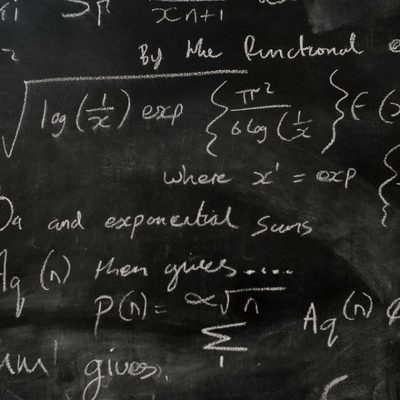 xn+1
By the functional
√ log(1/x) exp { π² / 6 log(1/x } F (x
where x' = exp {
and exponential sums
Aq (n) then gives.....
P(n) = Σ α√n 1 Aq(n) φ
gives.